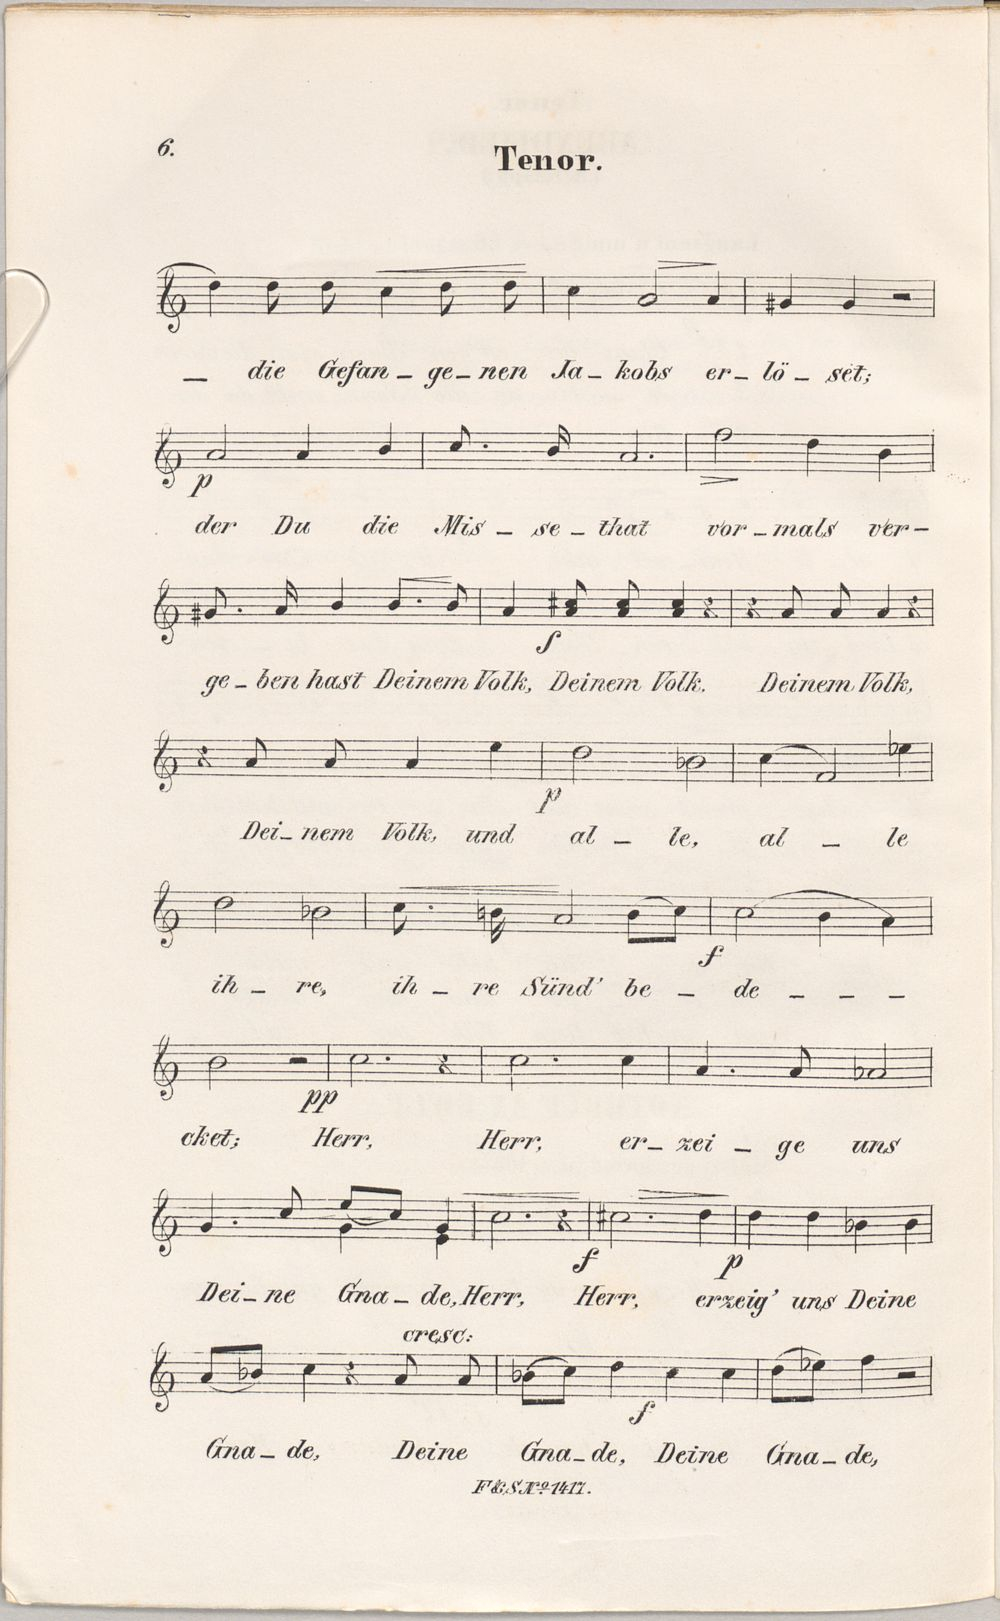 6.
Tenor.
_ die Gefan_ge_nen Ja_kobs er_lö_set;
p
der Du die Mis_se_that vor_mals ver_
f
ge_ben hast Deinem Volk, Deinem Volk. Deinem Volk,
p
Dei_nem Volk, und al_le, al_le
f
ih_re, ih_re Sünd' be_de___
pp
cket; Herr, Herr, er_zei_ge uns
f p
Dei_ne Gna_de, Herr, Herr, erzeig' uns Deine
cresc:
f
Gna_de, Deine Gna_de, Deine Gna_de,
F & S No. 1417.